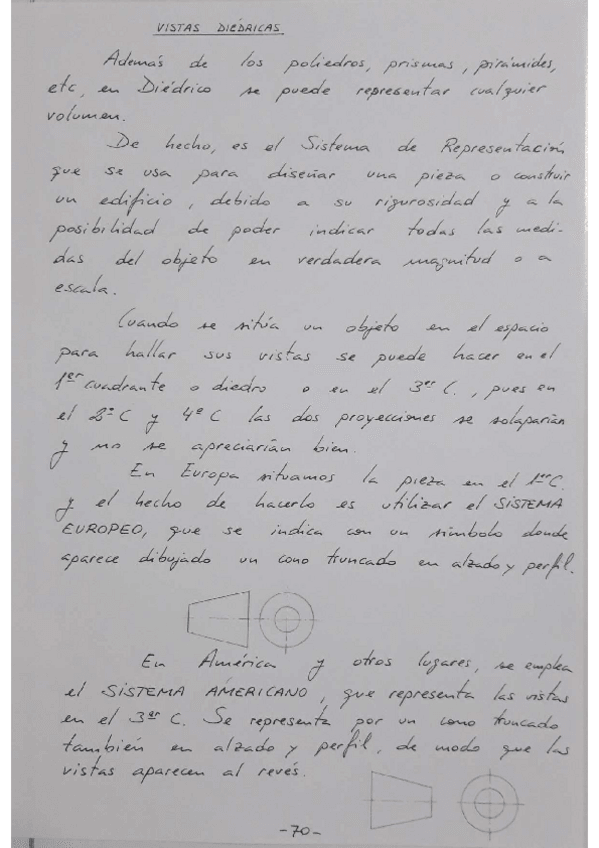 VISTAS DIÉDRICAS
Además de los poliedros, prismas, pirámides,
etc, en Diédrico se puede representar cualquier
volumen.
De hecho, es el Sistema de Representación
que se usa para diseñar una pieza o construir
un edificio, debido a su rigurosidad y a la
posibilidad de poder indicar todas las medi-
das del objeto en verdadera magnitud o a
escala.
Cuando se sitúa un objeto en el espacio
para hallar sus vistas se puede hacer en el
1er cuadrante o diedro o en el 3er C., pues en
el 2º C y 4º C las dos proyecciones se solaparían
y no se apreciarían bien.
En Europa situamos la pieza en el 1er C.
y el hecho de hacerlo es utilizar el SISTEMA
EUROPEO, que se indica con un símbolo donde
aparece dibujado un cono truncado en alzado y perfil.
En América y otros lugares, se emplea
el SISTEMA AMERICANO, que representa las vistas
en el 3er C. Se representa por un cono truncado
también en alzado y perfil, de modo que las
vistas aparecen al revés.
-70-